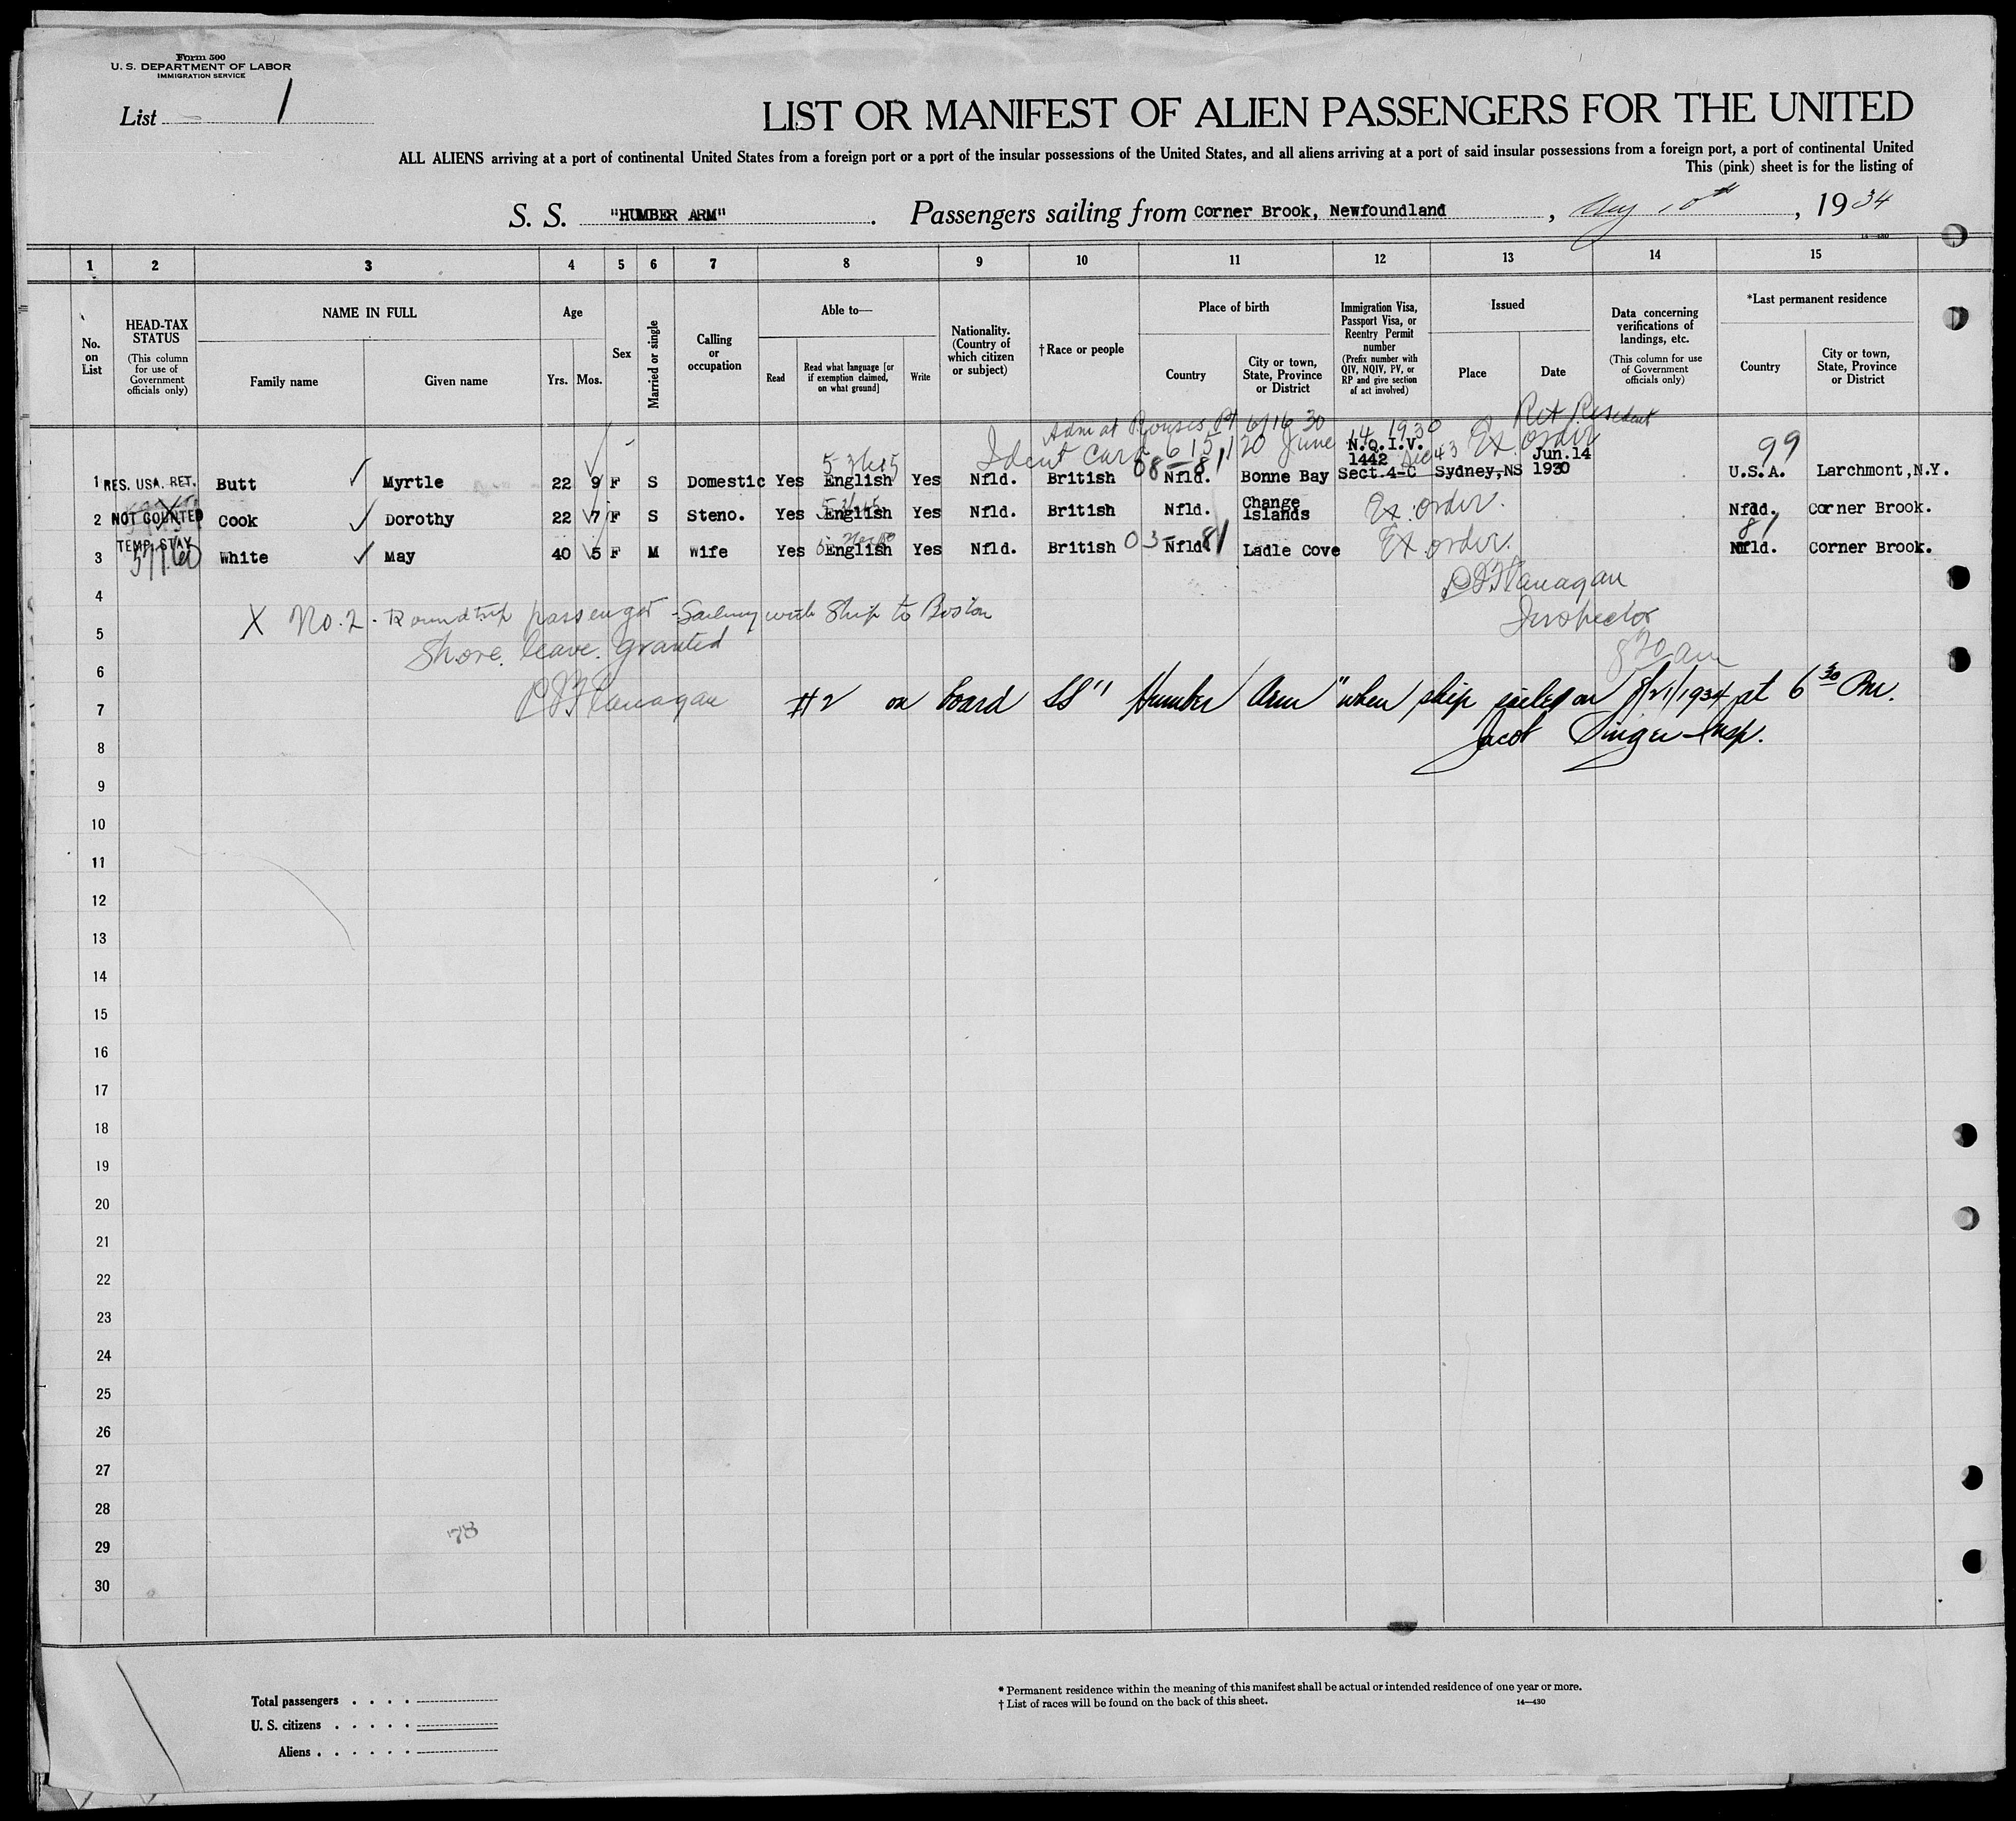 Form 500
U. S. DEPARTMENT OF LABOR
IMMIGRATION SERVICE
List 1
LIST OR MANIFEST OF ALIEN PASSENGERS FOR THE UNITED
ALL ALIENS arriving at a port of continental United States from a foreign port or a port of the insular possessions of the United States, and all aliens arriving at a port of said insular possessions from a foreign port, a port of continental United
This (pink) sheet is for the listing of
S. S. "HUMBER ARM" . Passengers sailing from Corner Brook, Newfoundland , 10th , 1934
14—430
1 2 3 4 5 6 7 8 9 10 11 12 13 14 15
No. on List
HEAD-TAX STATUS (This column for use of Government officials only)
NAME IN FULL
Family name Given name
Age
Yrs. Mos.
Sex
Married or single
Calling or occupation
Able to—
Read Read what language [or if exemption claimed, on what ground] Write
Nationality. (Country of which citizen or subject)
†Race or people
Place of birth
Country City or town, State, Province or District
Immigration Visa, Passport Visa, or Reentry Permit number (Prefix number with QIV, NQIV, PV, or RP and give section of act involved)
Issued
Place Date
Data concerning verifications of landings, etc. (This column for use of Government officials only)
*Last permanent residence
Country City or town, State, Province or District
Adm at Rouses Pt 6/16 30 Ret Resident
Ident Card 615120 June 14 1930 Ex. order
99
1 RES. USA. RET. Butt Myrtle 22 9 F S Domestic Yes English Yes Nfld. British Nfld. Bonne Bay N.Q.I.V. 1442 Sect.4-C Sydney,NS Jun.14 1930 U.S.A. Larchmont,N.Y.
2 NOT COUNTED Cook Dorothy 22 7 F S Steno. Yes English Yes Nfld. British Nfld. Change Islands Ex. order. Nfld. Corner Brook.
3 TEMP. STAY White May 40 5 F M Wife Yes English Yes Nfld. British 03-81 Nfld. Ladle Cove Ex order. 81 Nfld. Corner Brook.
4 Flanagan
X No. 2. Roundtrip passenger - Sailing with Ship to Boston
5 Inspector
Shore leave granted
6 830 am
7 Flanagan #2 on board SS "Humber Arm" when ship sailed on 8/21/1934 at 6 30 Pm.
8 Jacob Singer Insp.
9
10
11
12
13
14
15
16
17
18
19
20
21
22
23
24
25
26
27
28
78
29
30
Total passengers . . . .
U. S. citizens . . . . .
Aliens . . . . . .
* Permanent residence within the meaning of this manifest shall be actual or intended residence of one year or more.
† List of races will be found on the back of this sheet. 14—430